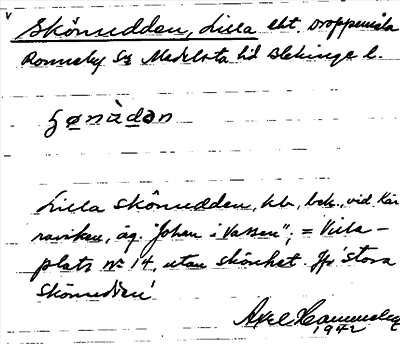 v
Skönsudden, Lilla ekt. Droppemåla
Ronneby Sn Medelsta hd Blekinge l.
Lilla Skönsudden, hb, beb., vid Kär
raviken, äg. "Johan i Vassen"; = Villa-
plats No 14, utan skönhet. Jfr 'Stora
Skönsudden'
Axel
1942